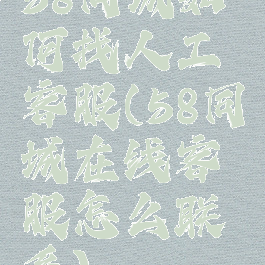 58同城如
何找人工
客服(58同
城在线客
服怎么联
系)